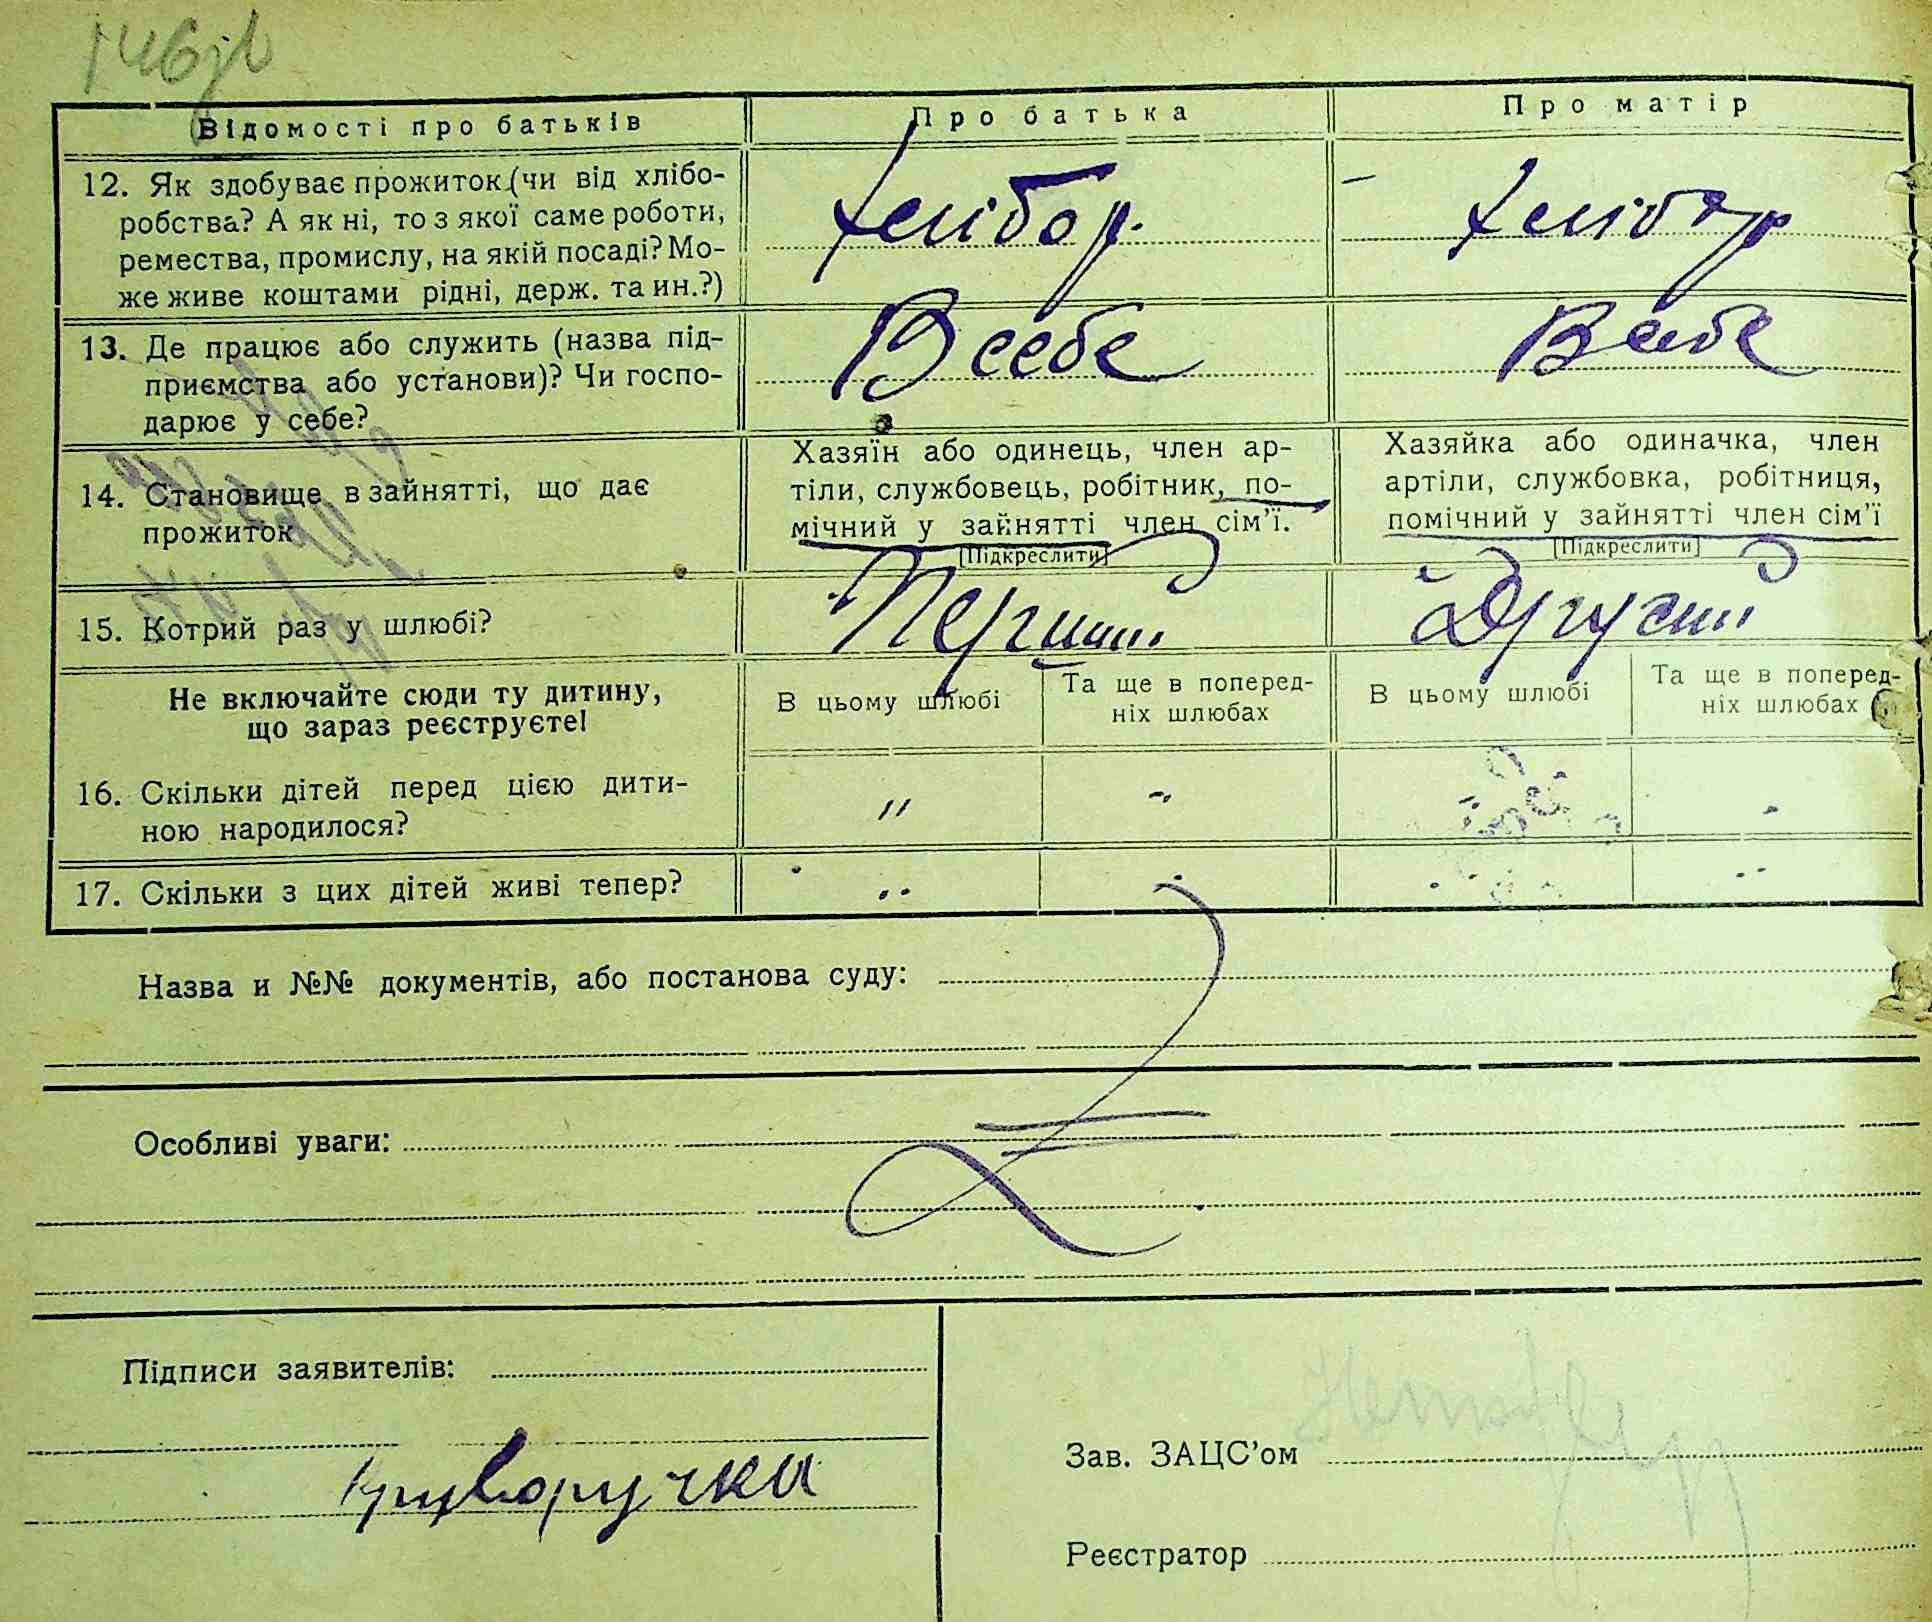 146
Відомості про батьків Про батька Про матір
12. Як здобуває прожиток (чи від хлібо-
робства? А як ні, то з якої саме роботи,
ремества, промислу, на якій посаді? Мо-
же живе коштами рідні, держ. та ин.?)
Хлібор. Хлібор
13. Де працює або служить (назва під-
приємства або установи)? Чи госпо-
дарює у себе?
В себе В себе
14. Становище в зайнятті, що дає
прожиток
Хазяїн або одинець, член ар-
тіли, службовець, робітник, по-
мічний у зайнятті член сім'ї.
[Підкреслити]
Хазяйка або одиначка, член
артіли, службовка, робітниця,
помічний у зайнятті член сім'ї
[Підкреслити]
15. Котрий раз у шлюбі? Перший Другий
Не включайте сюди ту дитину,
що зараз реєструєте!
В цьому шлюбі Та ще в поперед-
ніх шлюбах
В цьому шлюбі Та ще в поперед-
ніх шлюбах
16. Скільки дітей перед цією дити-
ною народилося?
" - -
17. Скільки з цих дітей живі тепер?
Назва и №№ документів, або постанова суду:
Особливі уваги:
Підписи заявителів:
Зав. ЗАЦС'ом
Реєстратор